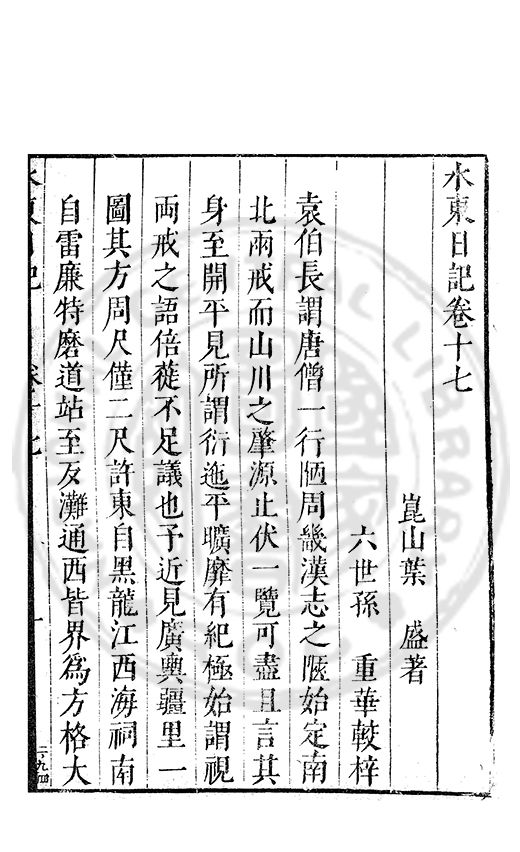 水東日記卷十七
崑山葉　盛著
六世孫　重華較梓
袁伯長謂唐僧一行陋周畿漢志之隘始定南
北兩戒而山川之肇源止伏一覽可盡且言其
身至開平見所謂衍迤平曠靡有紀極始謂視
兩戒之語倍蓰不足議也予近見廣輿疆里一
圖其方周尺僅二尺許東自黑龍江西海祠南
自雷廉特磨道站至反灘通西皆界為方格大
水東日記　卷十七　一